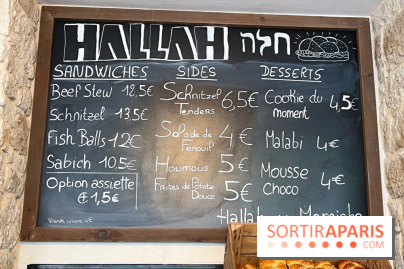 HALLAH חלה
SANDWICHES
Beef Stew 12,5€
Schnitzel 13.5€
Fish Balls 12€
Sabich 10,5€
Option assiette
1,5€
Viande origine UE
SIDES
Schnitzel Tenders 6,5€
Salade de Fenouil 4€
Houmous 5€
Frites de Patate Douce 5€
DESSERTS
Cookie du moment 4,5€
Malabi 4€
Mousse Choco 4€
Hallah
SORTIRAPARIS
.COM